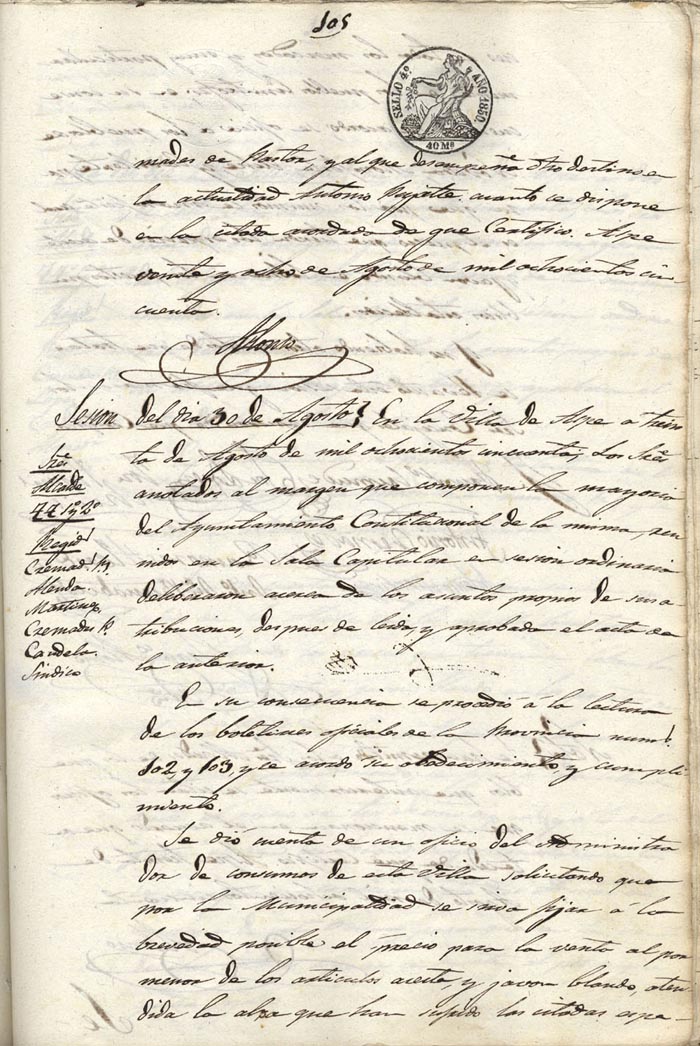 105
SELLO 4º
AÑO 1850
40 Ms
mades de Pastor, y al que desempeña otro destino en
la actualidad Antonio cuanto se dispone
en la citada acordada de que Certifico. Aspe
veinte y ocho de Agosto de mil ochocientos cin-
cuenta.
Alonso
Sesion del dia 30 de Agosto. En la Villa de Aspe a trein
ta de Agosto de mil ochocientos cincuenta, Los Sres
anotados al margen que componen la mayoria
del Ayuntamiento Constitucional de la misma, reu
nidos en la Sala Capitular en sesion ordinaria
deliberaron acerca de los asuntos propios de sus a
tribuciones, despues de leida y aprobada el acta de
la anterior.
Sres
Alcalde
1º y 2º
Regids
Cremads
Almda
Martinez
Cremades P.
Candela.
Sindico
En su consecuencia se procedió á la lectura
de los boletines oficiales de la Provincia nums
102, y 103, y se acordó su obedecimiento, y cumpli
miento.
Se dió cuenta de un oficio del Administra
dor de consumos de esta Villa solicitando que
por la Municipalidad se sirva fijar á la
brevedad posible el precio para la venta al por
menor de los articulos aceite, y javon blando, aten
dida la alza que han sufrido las citadas espe-